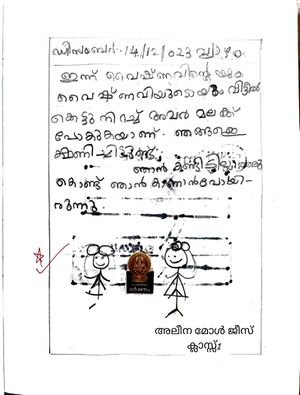 ഡിസംബർ 14/12/023 വ്യാഴം
ഇന്ന് വൈഷ്ണവിന്റെയും
വൈഷ്ണവിയുടെയും വീട്ടിൽ
കെട്ടുനിറച്ച് അവർ മലക്ക്
പോകുകയാണ്. ഞങ്ങളെ
ക്ഷണിച്ചിട്ടുണ്ട്.
ഞാൻ കണ്ടിട്ടില്ലാത്തതു
കൊണ്ട് ഞാൻ കാണാൻപോയി-
രുന്നു.
അലീന മോൾ ജീസ്
ക്ലാസ്സ്1